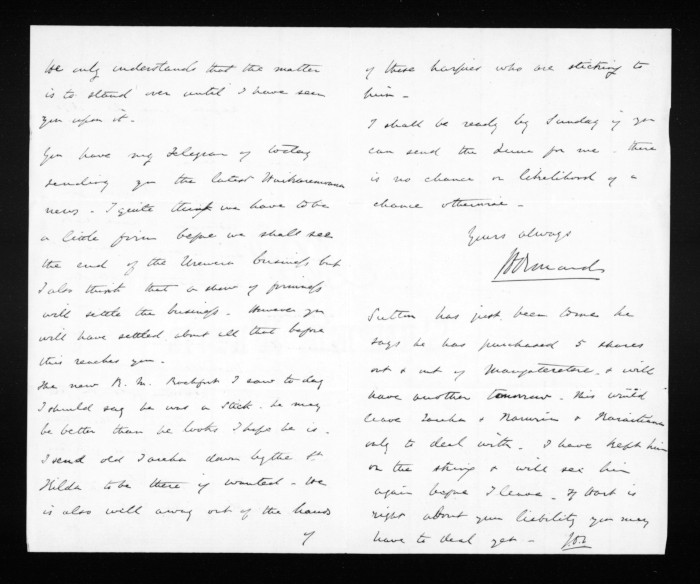 He only understands that the matter
is to stand over until I have seen
you upon it.
You have my Telegram of today
sending you the latest Waikaremoana
news. I quite think we have to be
a little firm before we shall see
the end of the Urewera business but
I also think that a show of firmness
will settle the business. However you
will have settled about all that before
this reaches you.
The new R. M. Rochfort I saw to day
I should say he was a stick. he may
be better than he looks I hope he is.
I send old Tareha down by the St
Hilda to be there if wanted. He
is also well away out of the hands
of
of these harpies who are sticking to
him -
I shall be ready by Sunday if you
can send the Luna for me. there
is no chance or likelihood of a
chance otherwise -
Yours always
JDOrmond
Sutton has just been come he
says he has purchased 5 shares
out & out of Mangateretere & will
have another tomorrow. this would
leave Tareha & &
only to deal with. I have kept him
on the string & will see him
again before I leave. If Hart is
right about your liability you may
have to deal yet - JDO